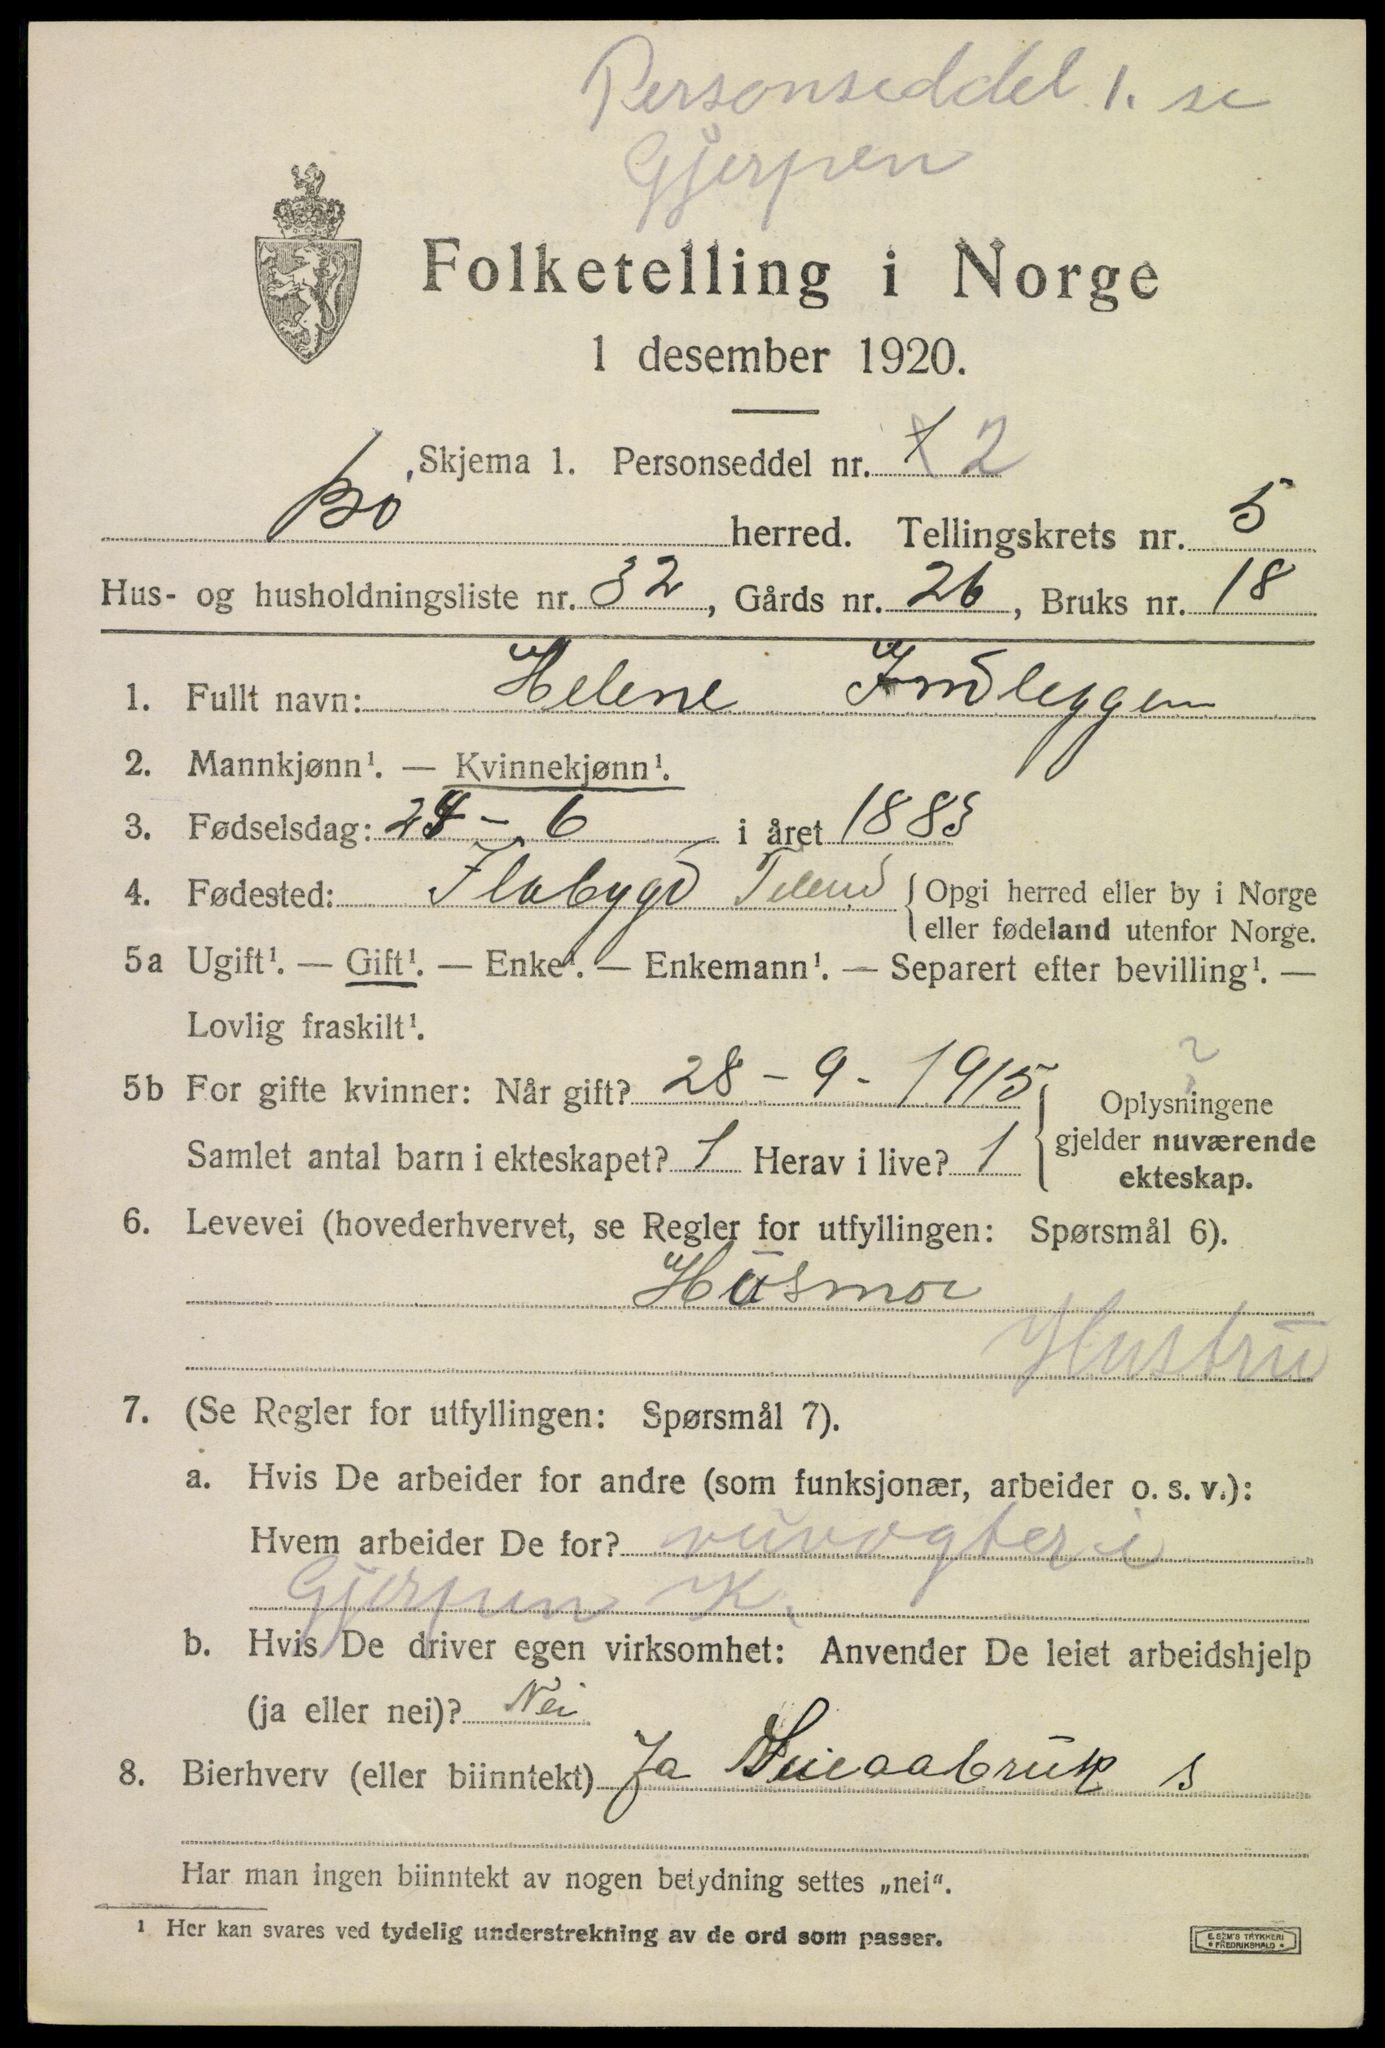 Personseddel 1. se
Gjerpen
Folketelling i Norge
1 desember 1920.
Skjema 1. Personseddel nr. 1 2
Bø herred. Tellingskrets nr. 5
Hus- og husholdningsliste nr. 32, Gårds nr. 26, Bruks nr. 18
1. Fullt navn: Helene Indleggen
2. Mannkjønn¹. — Kvinnekjønn¹.
3. Fødselsdag: 24 - 6 i året 1883
4. Fødested: Flabygd Telem { Opgi herred eller by i Norge
eller fødeland utenfor Norge.
5a Ugift¹. — Gift¹. — Enke¹. — Enkemann¹. — Separert efter bevilling¹. —
Lovlig fraskilt¹.
5b For gifte kvinner: Når gift? 28 - 9 - 1915 { Oplysningene
?
Samlet antal barn i ekteskapet? 1 Herav i live? 1 gjelder nuværende
ekteskap.
6. Levevei (hovederhvervet, se Regler for utfyllingen: Spørsmål 6).
Husmor
Hustru
7. (Se Regler for utfyllingen: Spørsmål 7).
a. Hvis De arbeider for andre (som funksjonær, arbeider o. s. v.):
Hvem arbeider De for? veivogter i
Gjerpen K.
b. Hvis De driver egen virksomhet: Anvender De leiet arbeidshjelp
(ja eller nei)? Nei
8. Bierhverv (eller biinntekt) Ja s
Har man ingen biinntekt av nogen betydning settes „nei“.
¹ Her kan svares ved tydelig understrekning av de ord som passer.
E. SEM'S TRYKKERI
FREDRIKSHALD